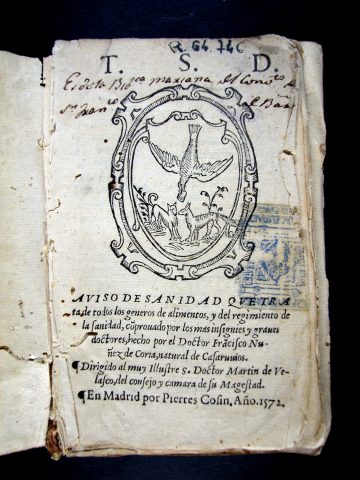 R. 64.746
T. S. D.
Es de la Bip.ca mariana del Conv.to de
s.n Fran.co el
AVISO DE SANIDAD QVE TRA
ta, de todos los generos de alimentos, y del regimiento de
la sanidad, cõprouado por los mas insignes y graues
doctores, hecho por el Doctor Frãcisco Nu-
ñez de Coria, natural de Casarruuios.
¶Dirigido al muy Illustre S. Doctor Martin de Ve-
lasco, del consejo y camara de su Magestad.
¶En Madrid por Pierres Cosin, Año. 1572.